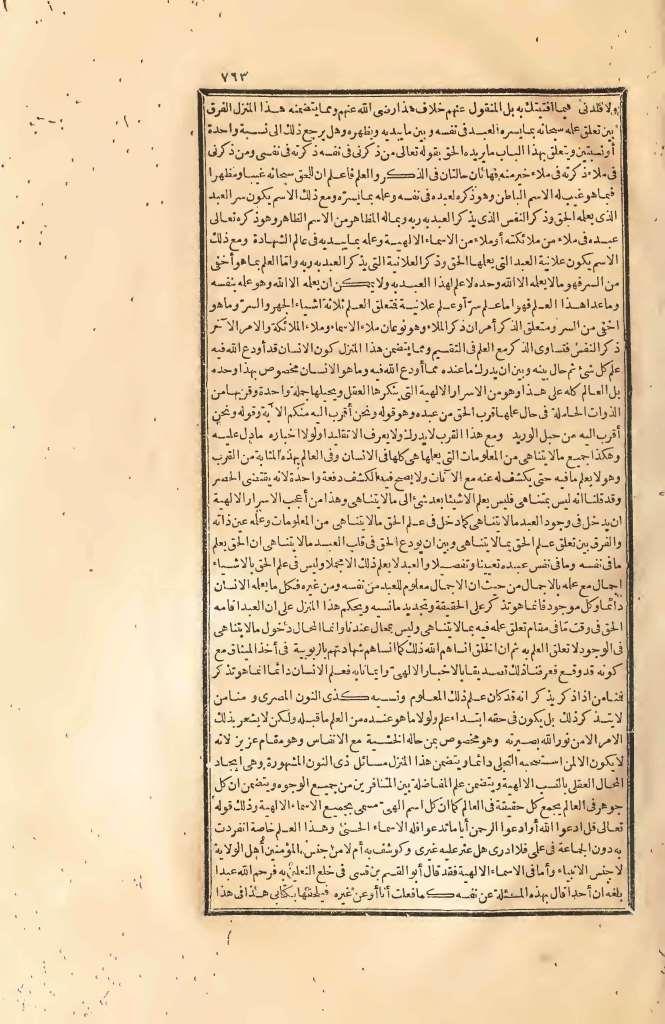 ٧٦٣
ولا قلدني فيما أفتيتك به بل المنقول عنهم خلاف هذا رضى الله عنهم ومما يتضمنه هذا المنزل الفرق
بين تعلق علمه سبحانه بما يسره العبد فى نفسه وبين ما يبديه ويظهره وهل يرجع ذلك الى نسبة واحدة
أو نسبتين ويتعلق بهذا الباب ما يريده الحق بقوله تعالى من ذكرنى فى نفسه ذكرته فى نفسى ومن ذكرنى
فى ملاء ذكرته فى ملاء خير منه فهاتان حالتان فى الذكر والعلم فاعلم ان للحق سبحانه غيبا ومظهرا
فيما هو غيب له الاسم الباطن وهو ذكره لعبده فى نفسه وعلمه بما يسرّه ومع ذلك الاسم يكون سر العبد
الذى يعلمه الحق وذكر النفس الذى يذكر العبد به ربه وبماله المظاهر من الاسم الظاهر وهو ذكره تعالى
عبده فى ملاء من ملائكته أو ملاء من الاسماء الالهية وعلمه بما يبديه فى عالم الشهادة ومع ذلك
الاسم يكون علانية العبد التى يعلمها الحق وذكر العلانية التى يذكر العبد به ربه وامّا العلم بما هو أخفى
من السر فهو ما لا يعلمه الا الله وحده لا علم لهذا العبد به ولا يمكن ان يعلمه الا الله وهو علمه بنفسه
وما عدا هذا العلم فهو اما علم سرّ أو علم علانية فتعلق العلم ثلاثة اشياء الجهر والسرّ وما هو
اخفى من السر ومتعلق الذكر أمران ذكر الملاء وهو نوعان ملاء الاسماء وملاء الملائكة والامر الآخر
ذكر النفس فتساوى الذكر مع العلم فى التقسيم ومما يتضمن هذا المنزل كون الانسان قد أودع الله فيه
علم كل شئ ثم حال بينه وبين ان يدرك ما عنده مما أودع الله فيه وما هو الانسان مخصوص بهذا وحده
بل العالم كله على هذا وهو من الاسرار الالهية التى ينكرها العقل ويحيلها جملة واحدة وقربها من
الذوات الحاملة فى حال علمها قرب الحق من عبده وهو قوله ونحن أقرب اليه منكم الآية وقوله ونحن
أقرب اليه من حبل الوريد ومع هذا القرب لا يدرك ولا يعرف الا تقليدا ولولا اخباره ما دل عليه
وهكذا جميع ما لا يتناهى من المعلومات التى يعلمها هى كلها فى الانسان وفى العالم بهذه المثابة من القرب
وهو لا يعلم ما فيه حتى يكشف له عنه مع الآنات ولا يصح فيه الكشف دفعة واحدة لانه يقتضى الحصر
وقد قلنا انه ليس بمتناهى فليس يعلم الا شيئا بعد شئ الى ما لا يتناهى وهذا من أعجب الاسرار الالهية
ان يدخل فى وجود العبد ما لا يتناهى كما دخل فى علم الحق ما لا يتناهى من المعلومات وعلمه عين ذاته
والفرق بين تعلق علم الحق بما لا يتناهى وبين ان يودع الحق فى قلب العبد ما لا يتناهى ان الحق يعلم
ما فى نفسه وما فى نفس عبده تعيينا وتفصيلا والعبد لا يعلم ذلك الا مجملا وليس فى علم الحق بالاشياء
اجمال مع علمه بالاجمال من حيث ان الاجمال معلوم للعبد من نفسه ومن غيره فكل ما يعلمه الانسان
دائما وكل موجود فانما هو تذكّر على الحقيقة وتجديد ما نسيه ويحكم هذا المنزل على ان العبد اقامه
الحق فى وقت تما فى مقام تعلق علمه فيه بما لا يتناهى وليس بمحال عندنا وانما المحال دخول ما لا يتناهى
فى الوجود لا تعلق العلم به ثم ان الخلق انساهم الله ذلك كما انساهم شهادتهم بالربوبية فى أخذ الميثاق مع
كونه قد وقع فعرفنا ذلك تصديقا بالاخبار الالهى وايمانا به فعلم الانسان دائما انما هو تذكر
فمنا من اذا ذكر يذكر انه قد كان علم ذلك المعلوم ونسيه كذى النون المصرى ومنا من
لا يتذكر ذلك بل يكون فى حقه ابتداء علم ولولا ما هو عنده من العلم ما قبله ولكن لا يشعر بذلك
الامر الا من نور الله بصيرته وهو مخصوص بمن حاله الخشية مع الانفاس وهو مقام عزيز لانه
لا يكون الا لمن استصحبه التجلى دائما ويتضمن هذا المنزل مسائل ذى النون المشهورة وهى ايجاد
المحال العقلى بالنسب الالهية ويتضمن علم المفاضلة بين المتنافرين من جميع الوجوه ويتضمن ان كل
جوهر فى العالم يجمع كل حقيقة فى العالم كما ان كل اسم الهى مسمى بجميع الاسماء الالهية وذلك قوله
تعالى قل ادعوا الله أو ادعوا الرحمن أيا ما تدعوا فله الاسماء الحسنى وهذا العلم خاصة انفردت
به دون الجماعة فى علمى فلا ادرى هل عثر عليه غيرى وكوشف به أم لا من جنس المؤمنين أهل الولاية
لا جنس الانبياء وأما فى الاسماء الالهية فقد قال أبو القسم بن قسى فى خلع النعلين به فرحم الله عبدا
بلغه ان أحدا قال بهذه المسئلة عن نفسه كما فعلت أنا أو عن غيره فيلحقها بكتابى هذا فى هذا